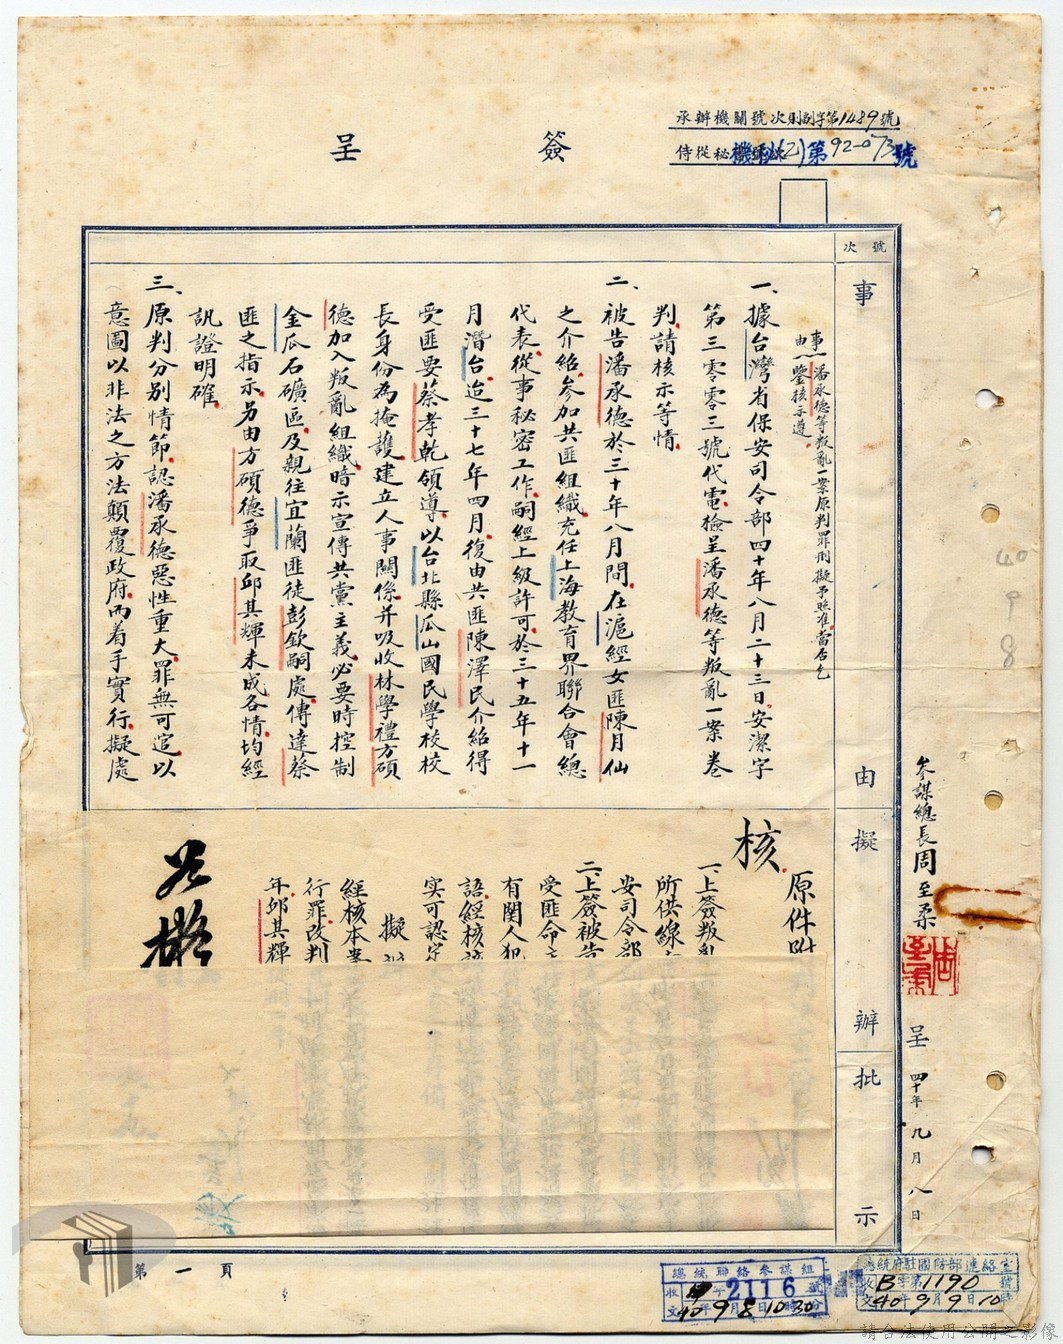 承辦機關號次則創字第1489號
侍從秘機秘(乙)第92-073號
簽呈
號次
事由
擬辦
批示
事由:潘承德等叛亂一案原判罪刑擬予照准當否乞
鑒核示遵
一、據台灣省保安司令部四十年八月二十三日安潔字
第三零零三號代電檢呈潘承德等叛亂一案卷
判請核示等情
二、被告潘承德於三十年八月間在滬經女匪陳月仙
之介紹參加共匪組織充任上海教育界聯合會總
代表從事秘密工作嗣經上級許可於三十五年十一
月潛台迨三十七年四月復由共匪陳澤民介紹得
受匪要蔡孝乾領導以台北縣瓜山國民學校校
長身份為掩護建立人事關係并吸收林學禮方碩
德加入叛亂組織暗示宣傳共黨主義必要時控制
金瓜石礦區及親往宜蘭匪徒彭欽嗣處傳達蔡
匪之指示另由方碩德爭取邱其輝未成各情均經
訊證明確
三、原判分別情節認潘承德惡性重大罪無可逭以
意圖以非法之方法顛覆政府而着手實行擬處
參謀總長周至柔
呈 四十年九月八日
核
原件附
一、上簽叛亂
所供線
安司令部
二、上簽被告
受匪命
有關人犯
語經核
實可認定
擬
經核本案
行罪改判
年邱其輝
如擬
第一頁
總統聯絡參謀組
收 字2116號
文40年9月8日10時30分
總統府駐國防部連絡室
收B字第1190號
文40年9月9日10時
40
9
8
請合法使用公開之影像